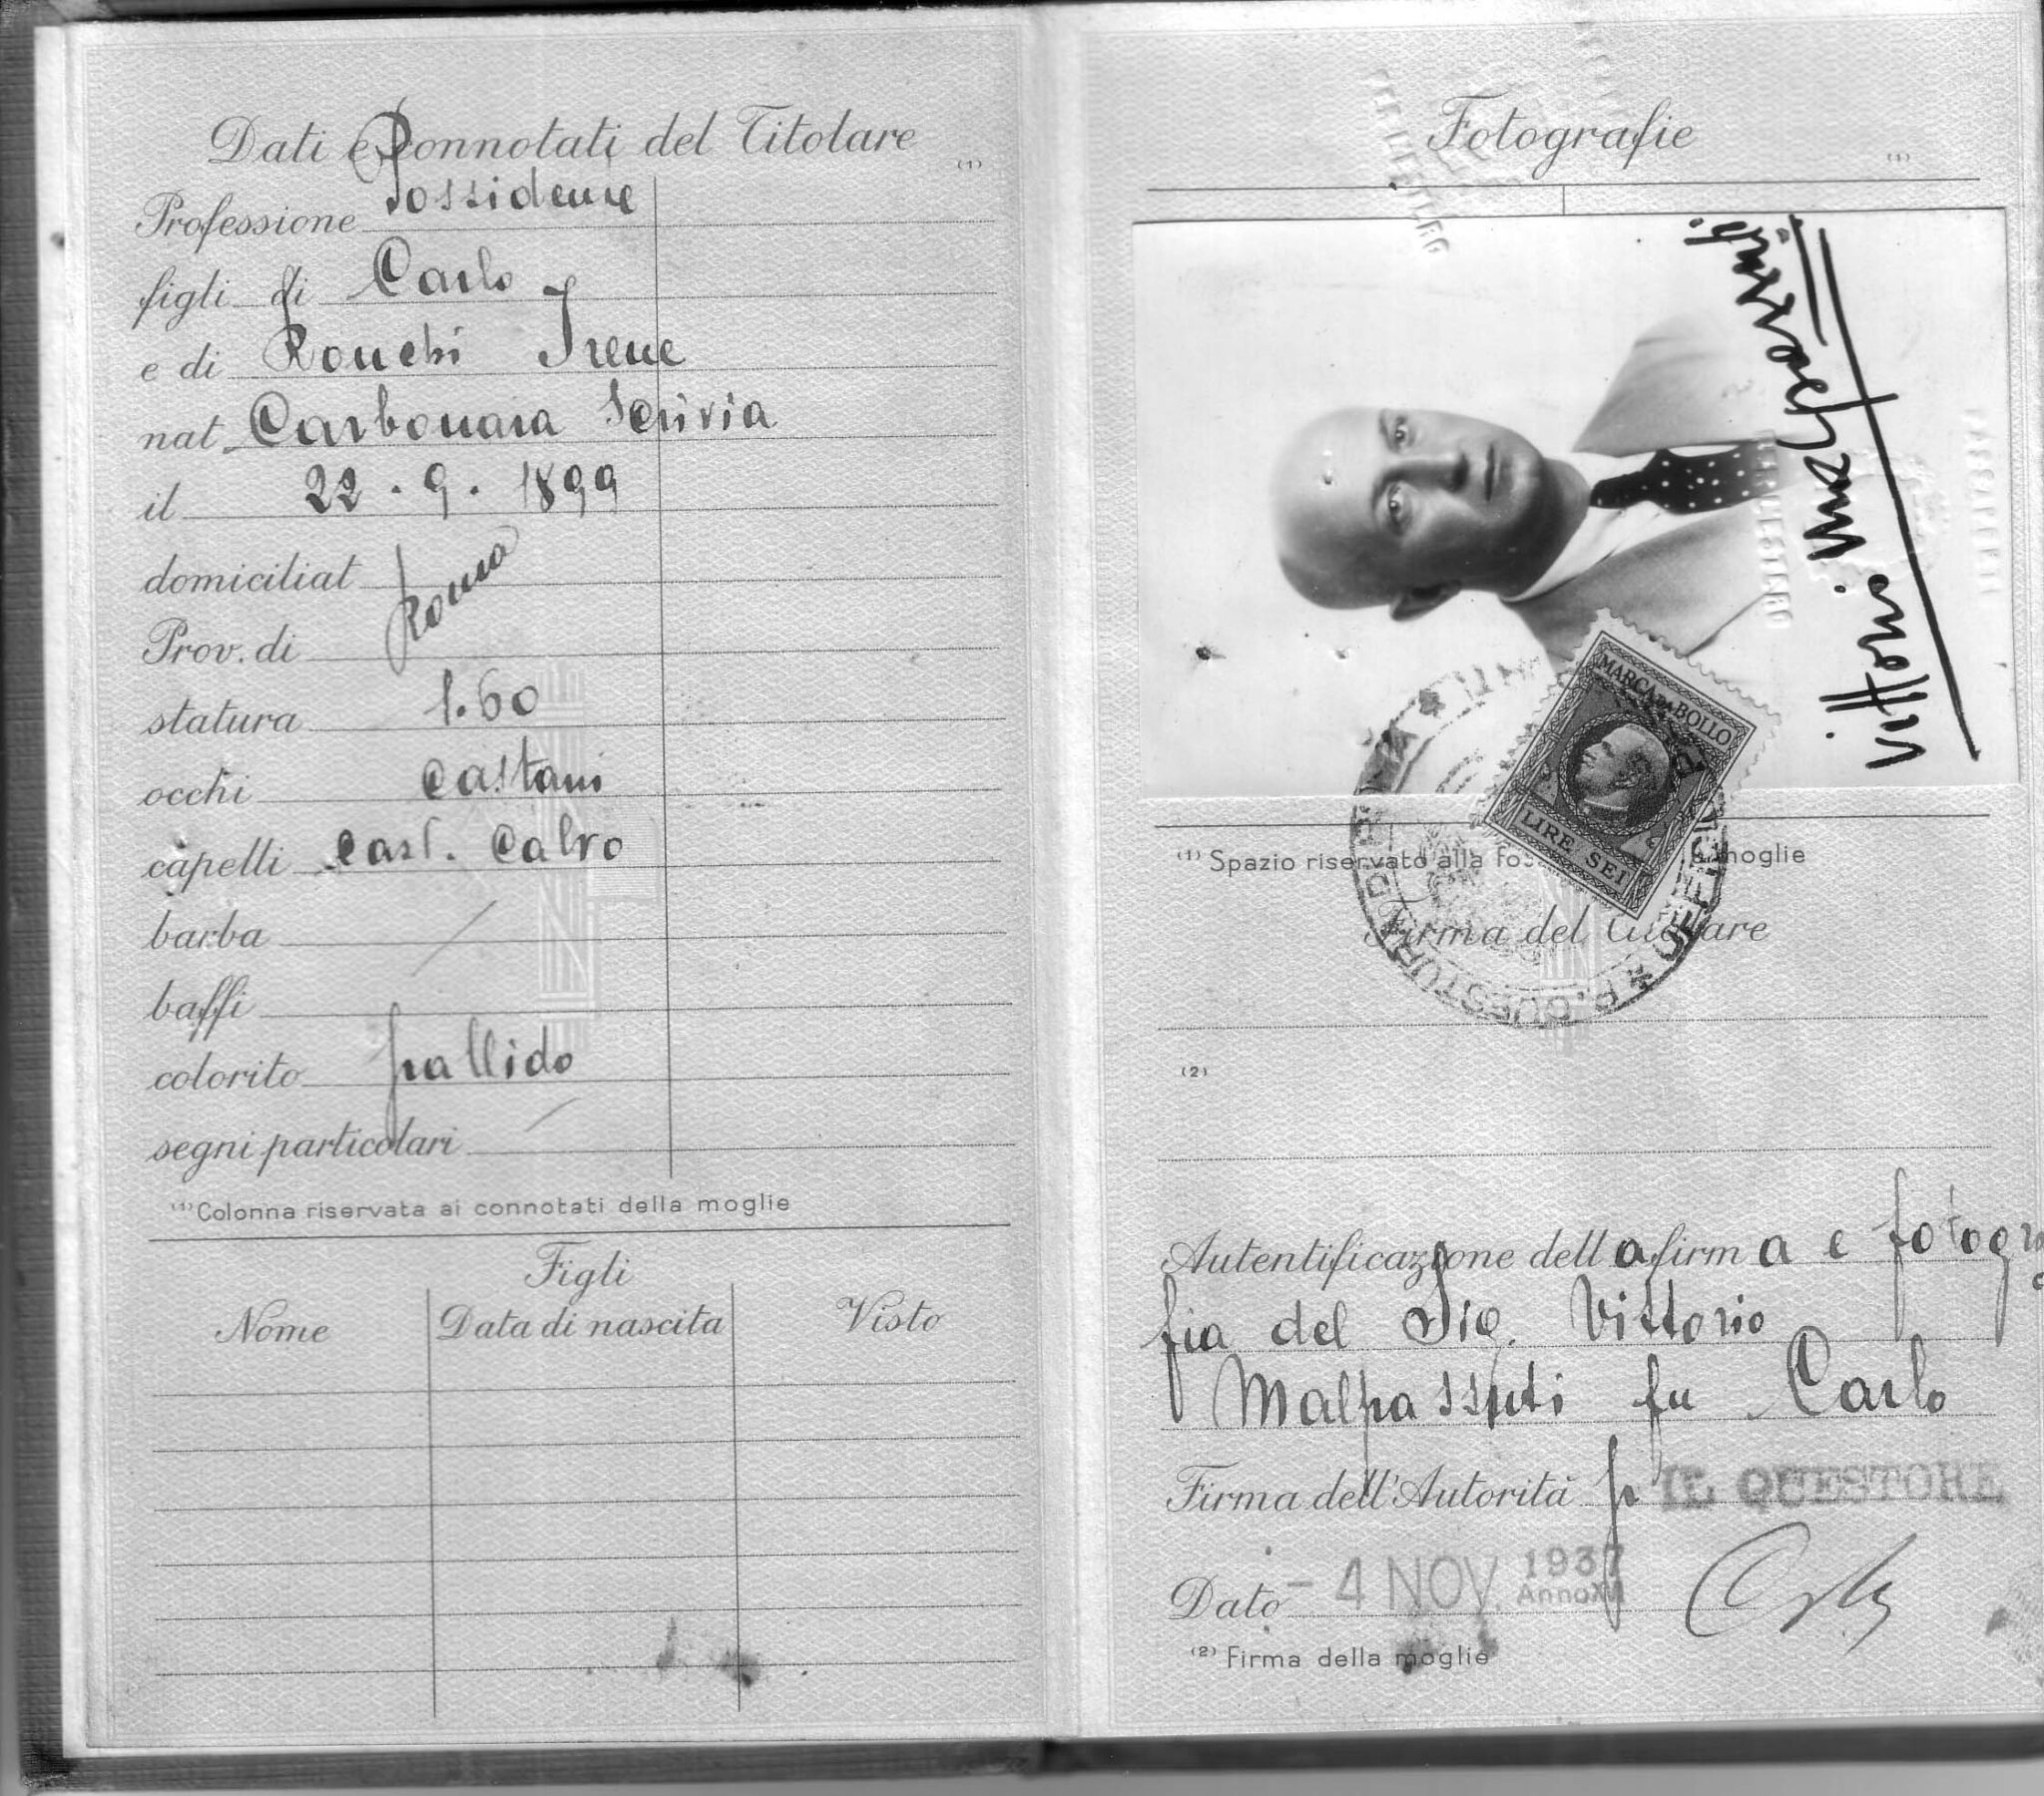 Dati e Connotati del Titolare
(1)
Professione Possidente
figli di Carlo
e di Ronchi Irene
nat Carbonara Scrivia
il 22 . 9 . 1899
domiciliat Roma
Prov. di
statura 1.60
occhi castani
capelli cast. calvo
barba
baffi
colorito pallido
segni particolari
(1) Colonna riservata ai connotati della moglie
Figli
Nome Data di nascita Visto
Fotografie
(1)
Vittorio Malpassuti
MARCA DA BOLLO
LIRE SEI
(1) Spazio riservato alla moglie
Firma del Titolare
R. QUESTURA
(2)
Autentificazione della firma e fotogra
fia del Sig. Vittorio
Malpassuti fu Carlo
Firma dell'Autorità p IL QUESTORE
Dato - 4 NOV. 1937
Anno XVI
(2) Firma della moglie